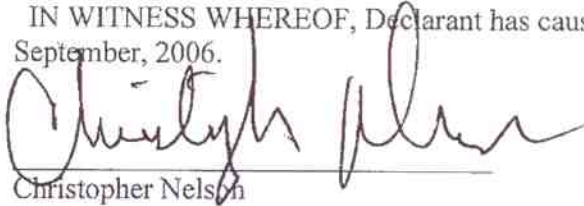 IN WITNESS WHEREOF, Declarant has caus
September, 2006.
Christopher Nelson
Christopher Nelson